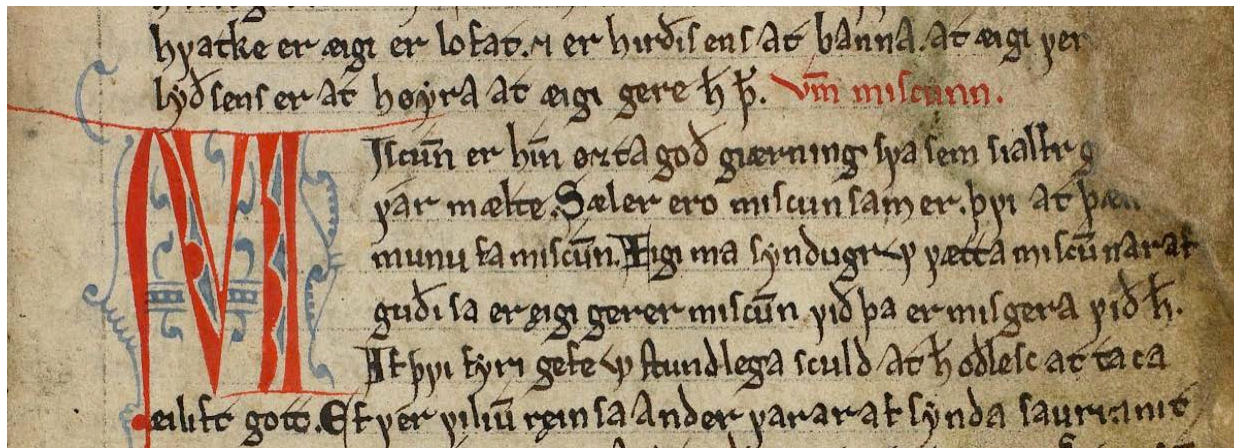 hƿatke er æigi er lofat. ⁊ er hirðisens at banna. at æigi ƿer
lyðsens er at høyra at æigi gere h̄ þ̄. Vm̄ miscunn.
MIscun̄ er hin̄ øꝛta goð giærning sƿa sem sialfr g
ƿar mælte. Sæler ero miscunsamer. þƿi at þæi
munu fa miscun̄. Æigi ma syndugr ᛘ ƿætta miscun̄ar af
guði sa er ęigi gerer miscun̄ ƿið þa er misgera ƿið h̄.
At þƿi fyri gefe ᛘ stundlega sculd at h̄ oðlesc at taca
æilift gott. Ef ƿer ƿiliū ręinsa ander ƿarar af synda saur